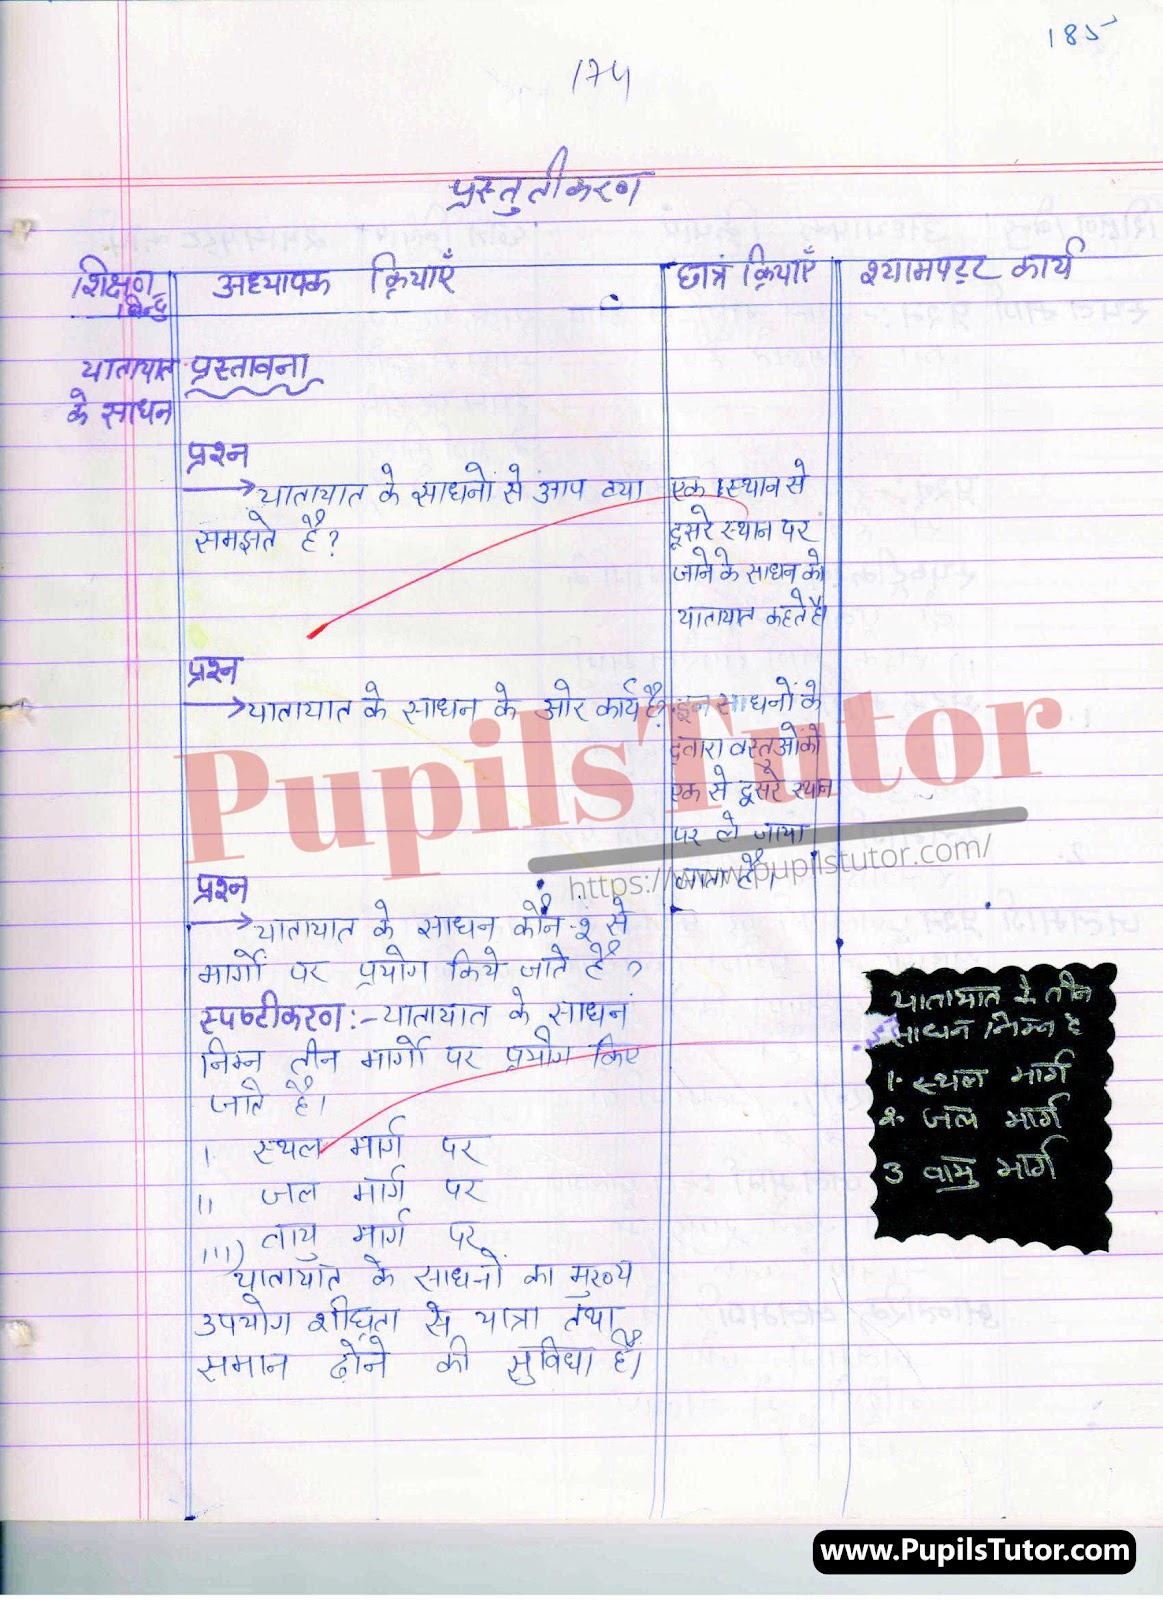 185
174
प्रस्तुतीकरण
शिक्षण बिन्दु
अध्यापक क्रियाएँ
छात्र क्रियाएँ
श्यामपट्ट कार्य
यातायात
के साधन
प्रस्तावना
प्रश्न
→यातायात के साधनों से आप क्या
समझते है?
एक स्थान से
दूसरे स्थान पर
जाने के साधन को
यातायात कहते है।
प्रश्न
→यातायात के साधन के ओर कार्य है?
इन साधनों के
द्वारा वस्तुओंको
एक से दूसरे स्थान
पर ले जाया
जाता है।
PupilsTutor
https://www.pupilstutor.com/
प्रश्न
→यातायात के साधन कौन-२ से
मार्गों पर प्रयोग किये जाते है?
स्पष्टीकरण:-यातायात के साधन
निम्न तीन मार्गो पर प्रयोग किए
जाते है।
। स्थल मार्ग पर
।। जल मार्ग पर
।।।) वायु मार्ग पर
यातायात के साधनों का मुख्य
उपयोग शीघ्रता से यात्रा तथा
समान ढोने की सुविधा है।
यातायात के तीन
साधन निम्न है
1. स्थल मार्ग
2. जल मार्ग
3 वायु मार्ग
www.PupilsTutor.com